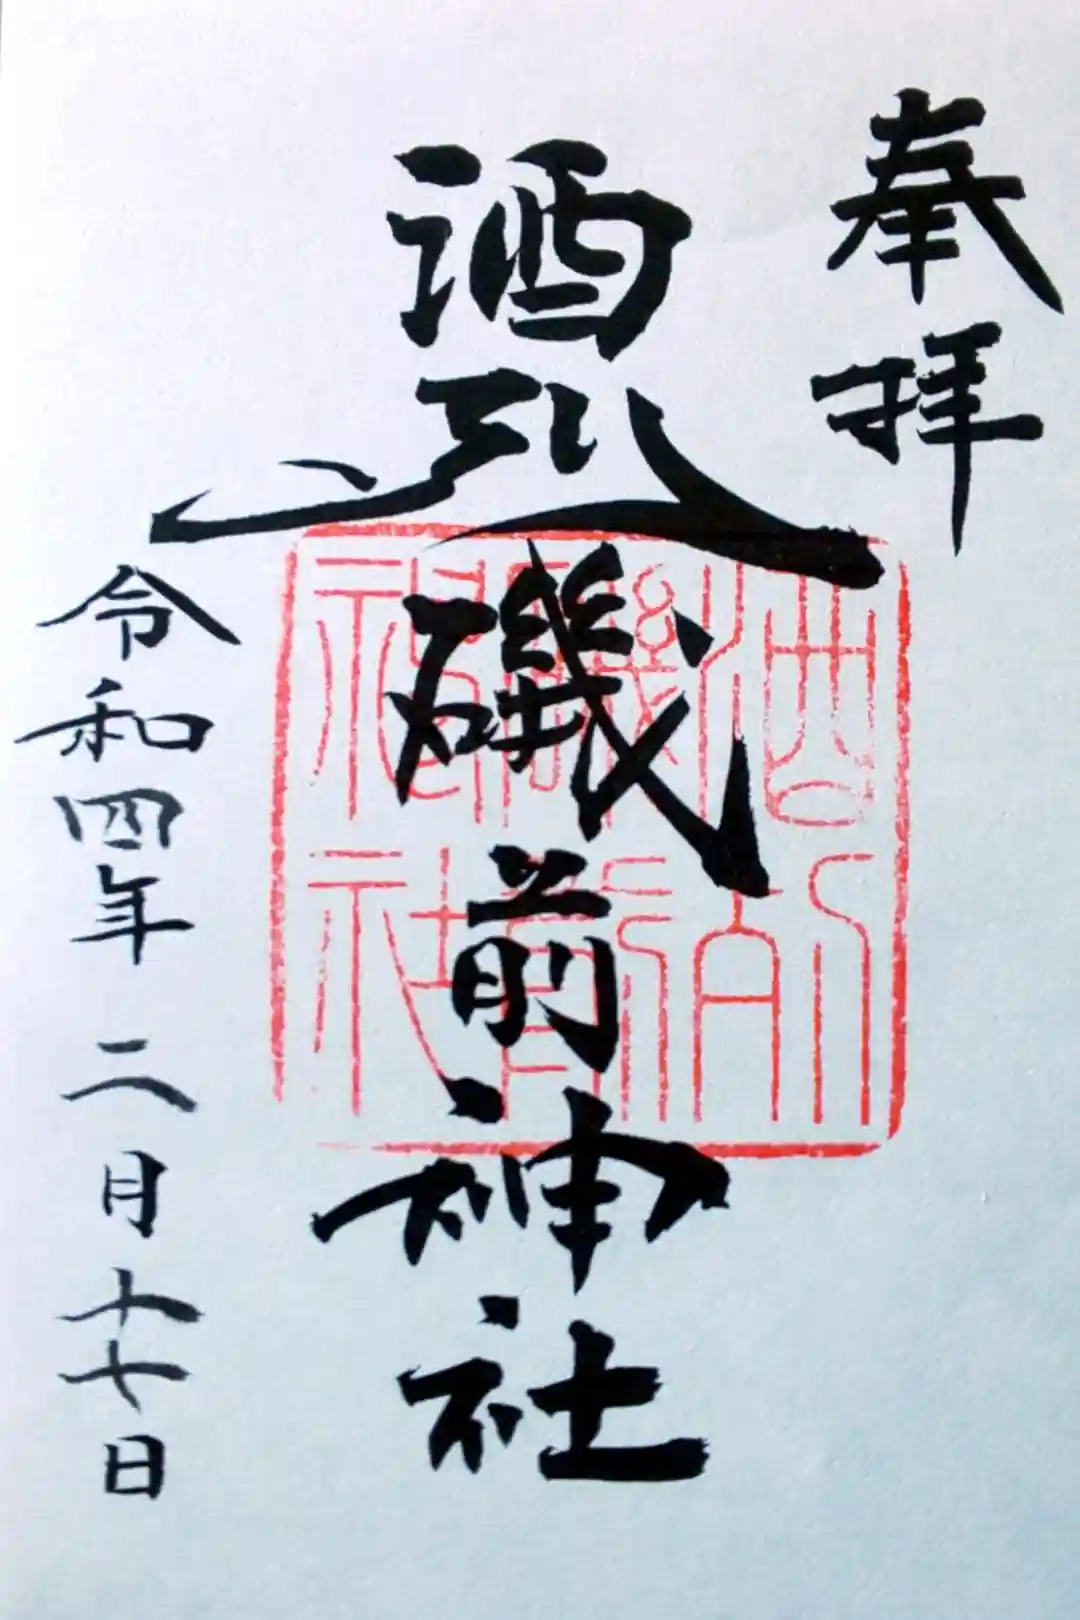 奉拝
酒列磯前神社
令和四年二月十七日
酒列
磯前
神社